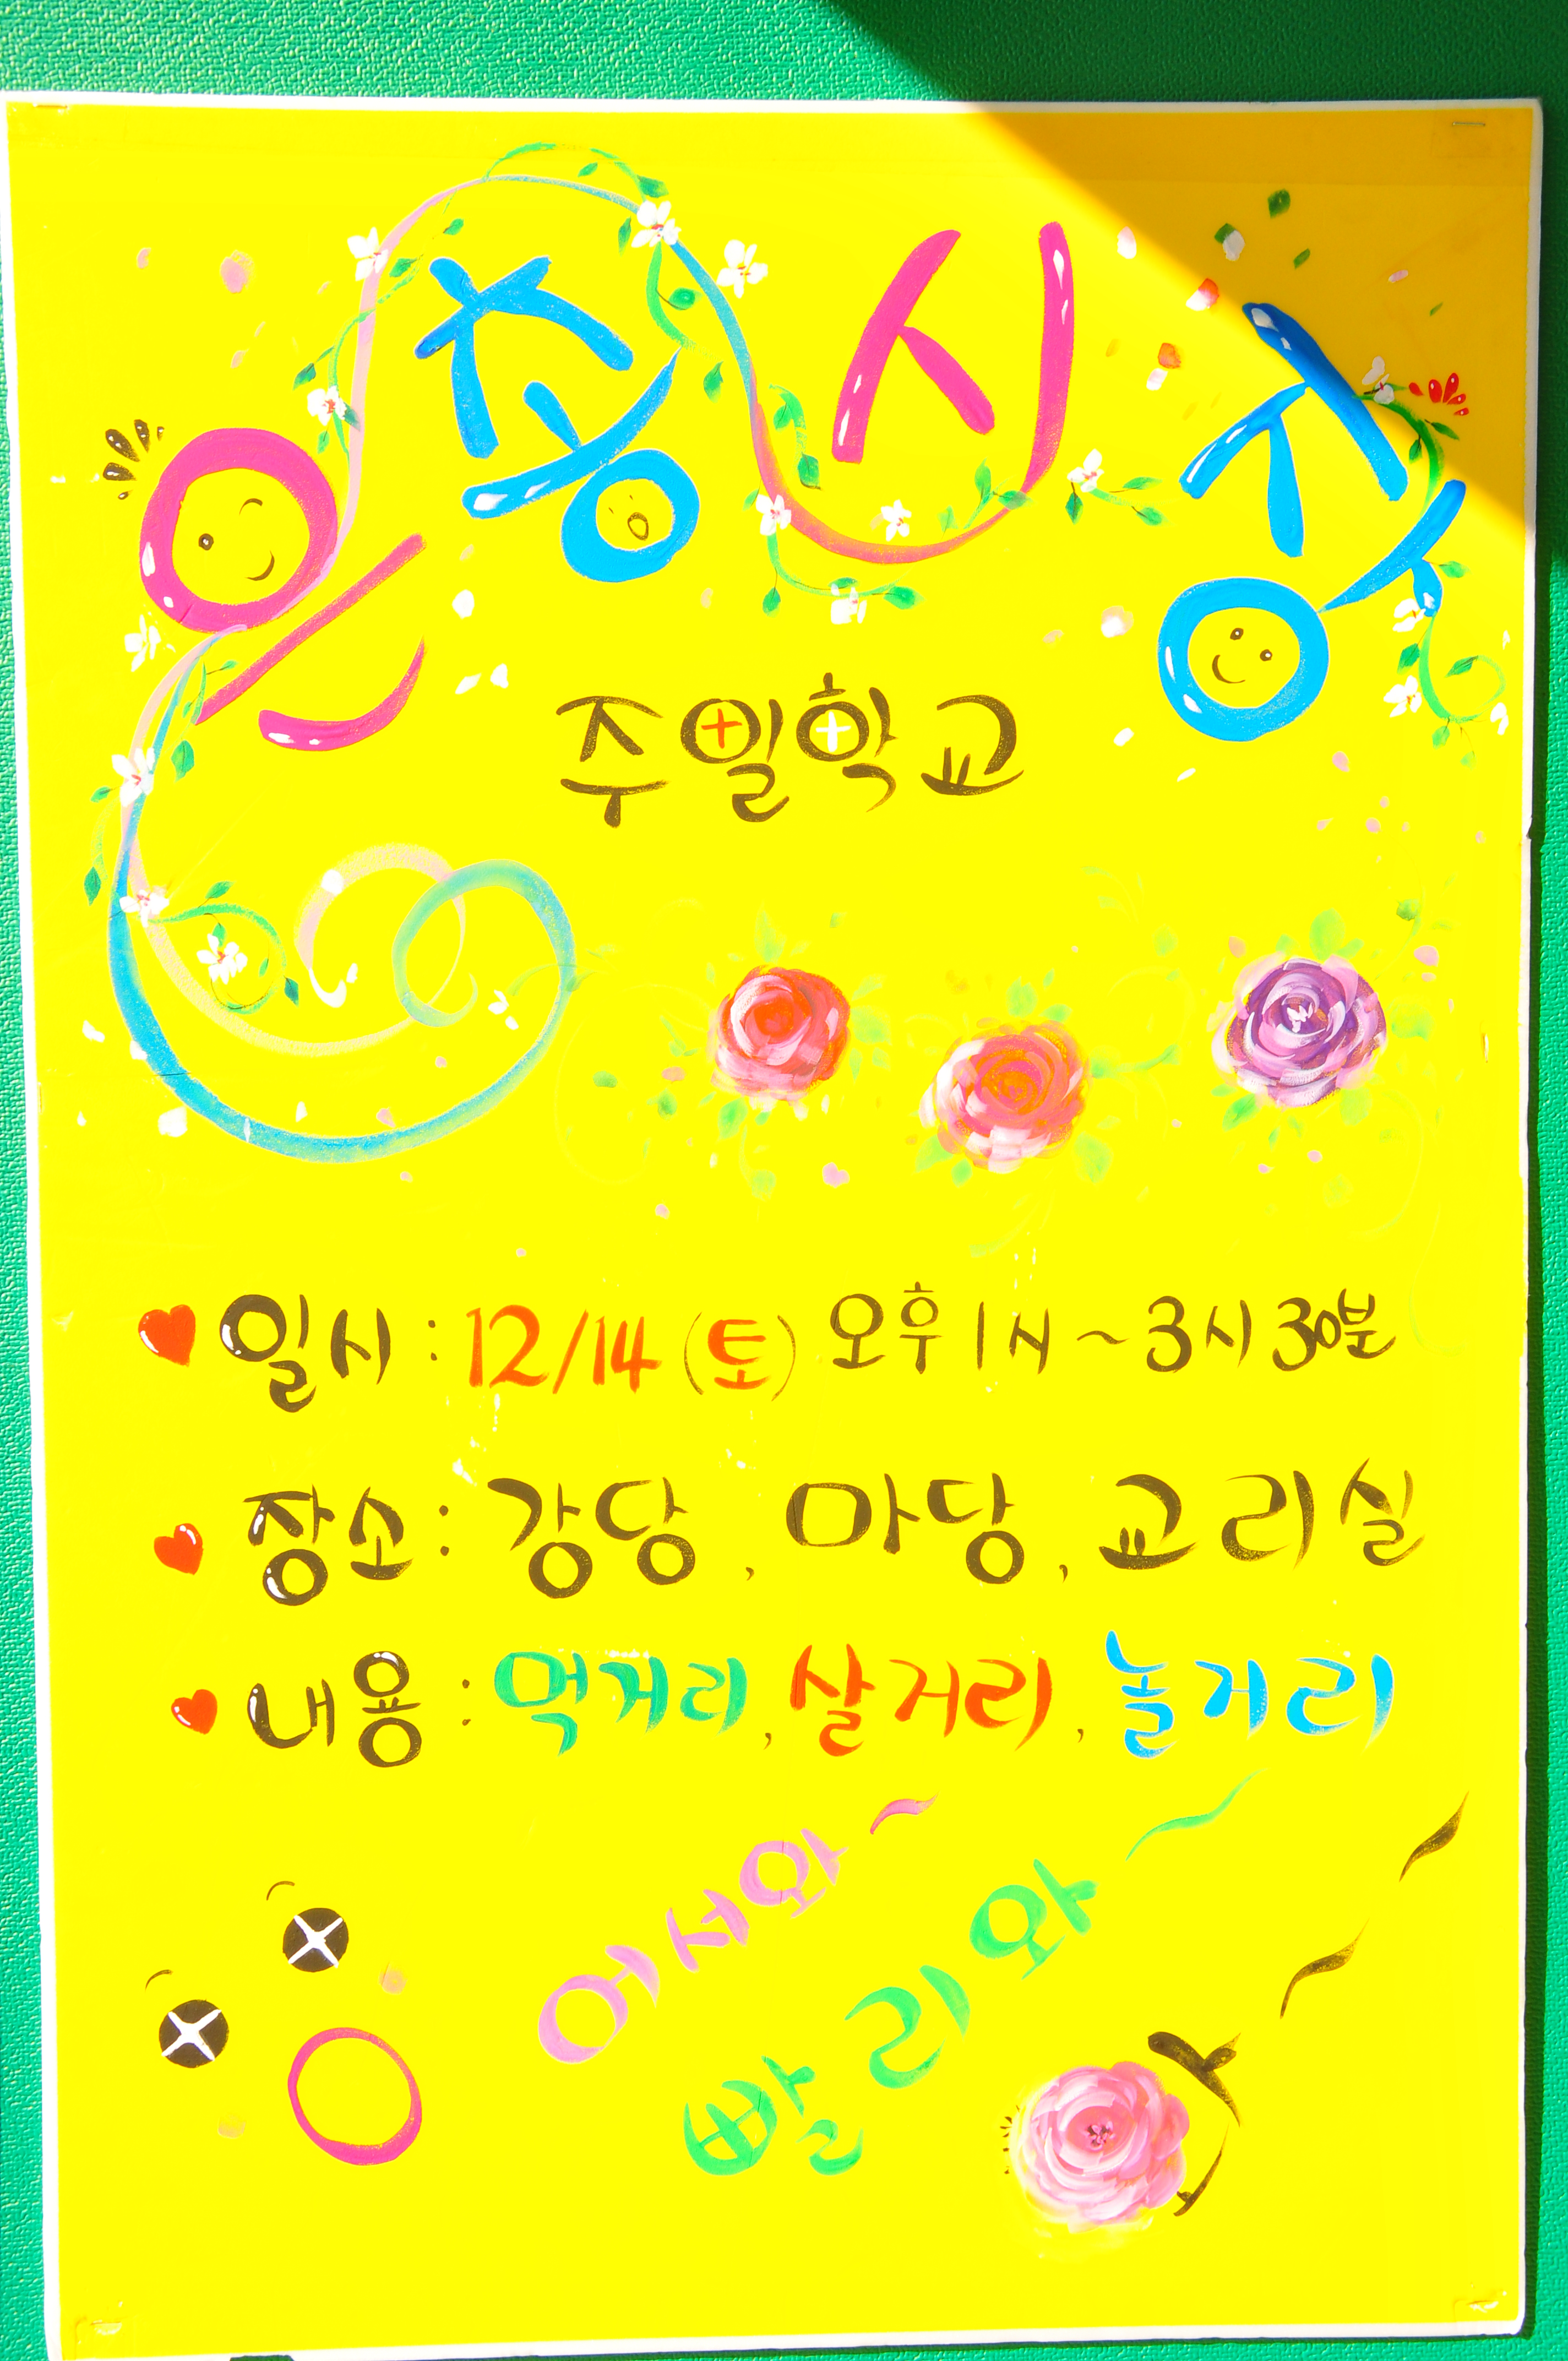 은총시장
주일학교
일시 : 12/14 (토) 오후 1시 ~ 3시 30분
장소 : 강당, 마당, 교리실
내용 : 먹거리, 살거리, 놀거리
어서와~
빨리와~